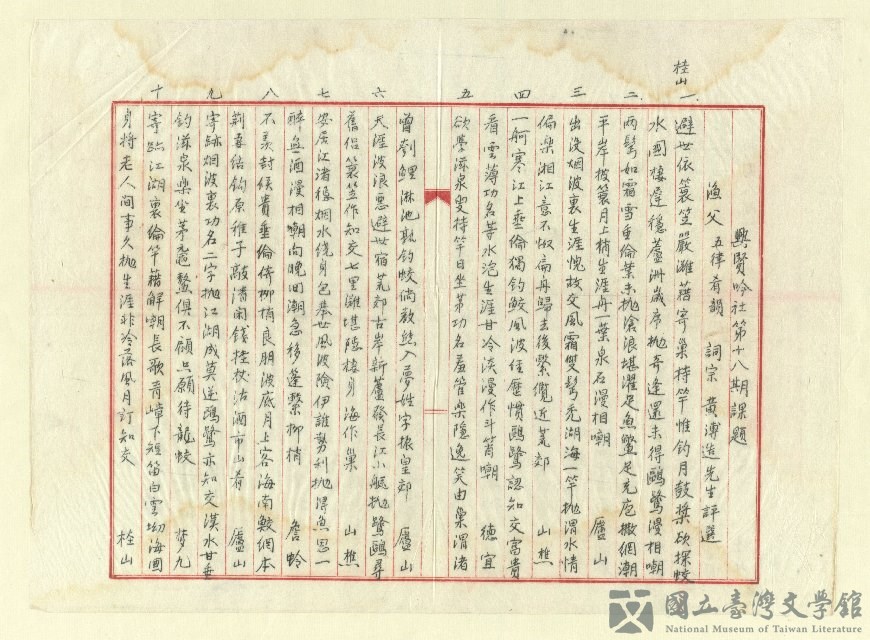 興賢吟社第十八期課題
漁父 五律肴韻 詞宗 黃溥造先生評選
一 避世依簑笠嚴灘藉寄巢持竿惟釣月鼓槳欲探蛟 桂山
水國棲遲穩蘆洲歲序拋奇逢還未得鷗鷺漫相嘲
二 兩髩如霜雪垂綸業未拋滄浪堪濯足魚鱉足充庖撒網潮
平岸披簑月上梢生涯舟一葉泉石漫相嘲 廬山
三 出沒烟波裏生涯愧故交風霜雙髩禿湖海一竿拋渭水情
偏樂湘江意不淆扁舟歸去後繫纜近荒郊 山樵
四 一舸寒江上垂綸獨釣鮫風波住歷慣鷗鷺認知交富貴
看雲薄功名等水泡生涯甘冷淡漫作斗筲嘲 德宜
五 欲學滋泉叟持竿日坐茅功名羞管樂隱逸笑由巢渭渚
曾刳鯉淋池孰釣蛟倘教熊入夢姓字振皇郊 廬山
六 天涯波浪惡避世宿荒郊古岸新蘆發長江小艇拋鷺鷗尋
舊侶簑笠作知交七里灘堪隱棲身海作巢 山樵
七 安居江渚穩烟水繞身包舉世風波險伊誰勢利拋得魚思一
醉無酒漫相嘲向晚回潮急移篷繫柳梢 詹岭
八 不羨封侯貴垂綸倚柳梢良朋波底月上客海南鮫網本
荊妻結鈎原稚子敲清閒錢掛杖沽酒市山肴 廬山
九 寄跡烟波裏功名二字拋江湖成莫逆鷗鷺亦知交渼水甘垂
釣滋泉樂坐茅黿鰲俱不願只願待龍蛟 夢九
十 寄跡江湖裏綸竿藉解嘲長歌青嶂下短笛白雲坳海國
身將老人間事久拋生涯非冷落風月訂知交 桂山
國立臺灣文學館
National Museum of Taiwan Literature